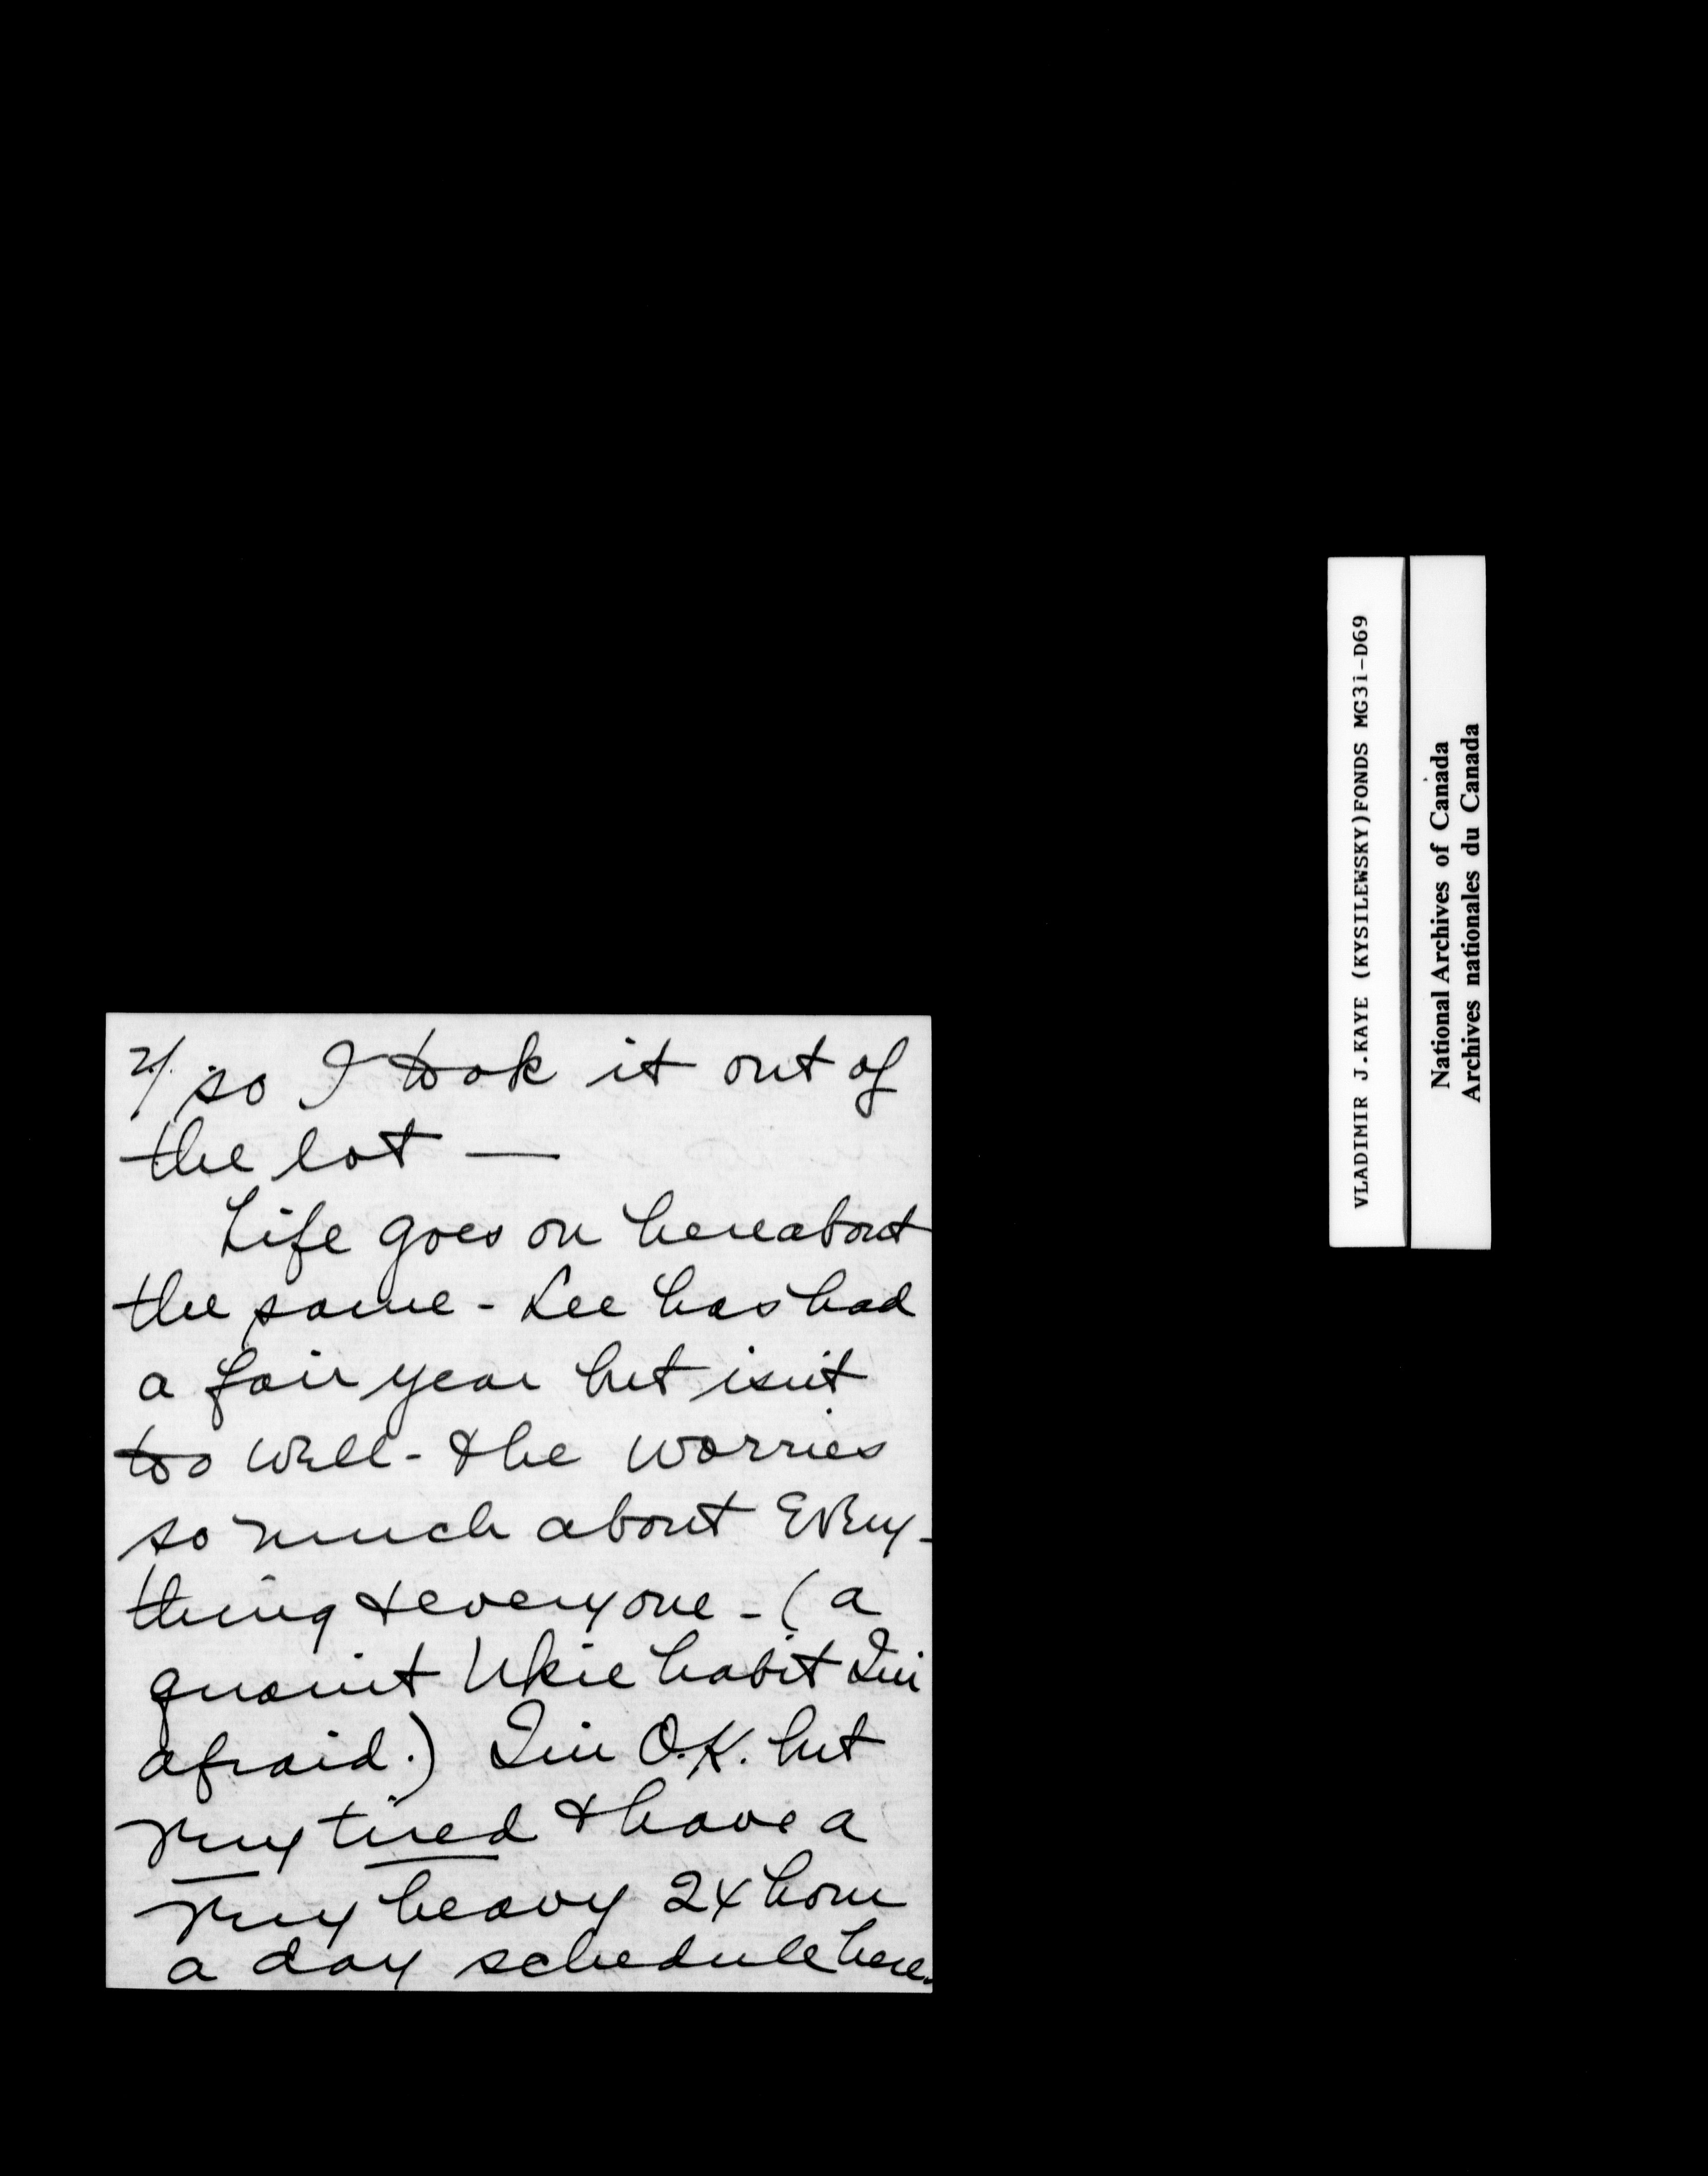 2/. so I took it out of
the lot —
Life goes on hereabout
the same - Lee has had
a fair year but isn't
too well - & he worries
so much about every-
thing & everyone - (a
quaint Ukie habit I'm
afraid.) I'm O.K. but
very tired & have a
very heavy 24 hour
a day schedule here.
VLADIMIR J.KAYE (KYSILEWSKY)FONDS MG31-D69
National Archives of Canada
Archives nationales du Canada